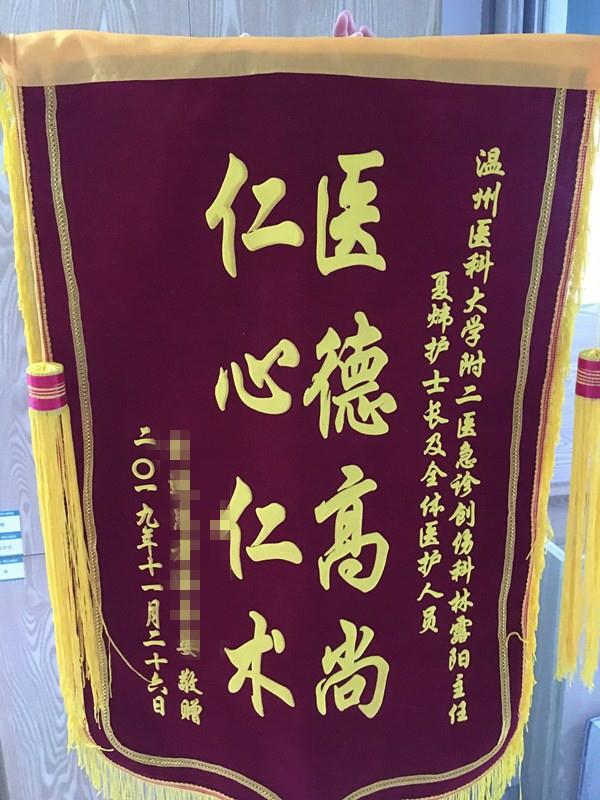 温州医科大学附二医急诊创伤科林露阳主任
夏炜护士长及全体医护人员
医德高尚
仁心仁术
敬赠
二〇一九年十一月二十六日